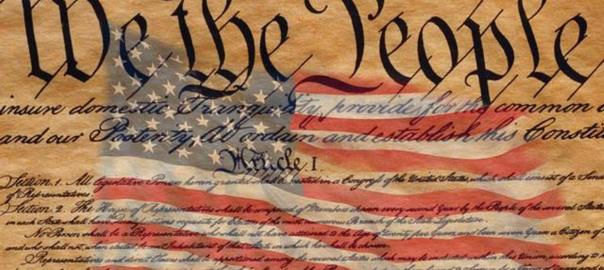 We the People
insure domestic Tranquility, provide for the common
and our Posterity, do ordain and establish this Constitu
Article. I
Section. 1. All legislative Powers herein granted shall be vested in a Congress of the United States, which shall consist of a Sena
of Representatives.
Section. 2. The House of Representatives shall be composed of Members chosen every second Year by the People of the several States
in each State shall have the most numerous Branch of the State Legislature.
No Person shall be a Representative who shall not have attained to the Age of twenty five Years, and been seven Years a Citizen of
and who shall not, when elected, be an Inhabitant of that State in which he shall be chosen.
Representatives and direct Taxes shall be apportioned among the several States which may be included within this Union, according to